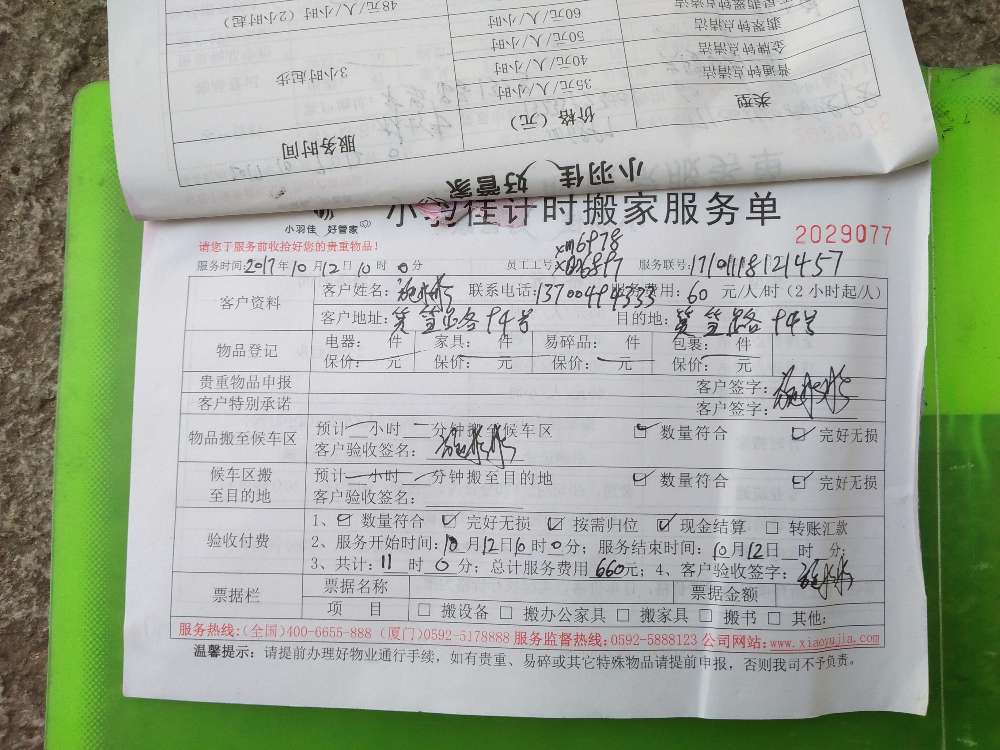 48元/人/小时（2小时起）
60元/人/小时
翡翠钟点清洁
50元/人/小时
金牌钟点清洁
3小时起步
40元/人/小时
普通钟点清洁
35元/人/小时
服务时间
价格（元）
类型
小羽佳 好管家
小羽佳计时搬家服务单
小羽佳 好管家
请您于服务前收拾好您的贵重物品！
2029077
服务时间:2017年10月12日10时0分 员工工号: xm6978 服务联号:
客户资料
客户姓名: 联系电话:13700494333 服务费用: 60 元/人/时（2小时起/人）
客户地址:篔筜路94号 目的地:篔筜路94号
物品登记
电器: 件 家具: 件 易碎品: 件 包裹: 件
保价: 元 保价: 元 保价: 元 保价: 元
贵重物品申报 客户签字:
客户特别承诺 客户签字:
物品搬至候车区
预计 小时 分钟搬至候车区 ☑ 数量符合 ☑ 完好无损
客户验收签名:
候车区搬至目的地
预计 小时 分钟搬至目的地 ☑ 数量符合 ☑ 完好无损
客户验收签名:
验收付费
1、☑ 数量符合 ☑ 完好无损 ☑ 按需归位 ☑ 现金结算 □ 转账汇款
2、服务开始时间:10月12日10时0分; 服务结束时间: 10月12日 时 分;
3、共计: 11 时 0 分; 总计服务费用 660元; 4、客户验收签字:
票据栏
票据名称 票据金额
项 目 □ 搬设备 □ 搬办公家具 □ 搬家具 □ 搬书 □ 其他:
服务热线:(全国)400-6655-888 (厦门)0592-5178888 服务监督热线:0592-5888123 公司网站:www.xiaoyujia.com
温馨提示: 请提前办理好物业通行手续，如有贵重、易碎或其它特殊物品请提前申报，否则我司不予负责。